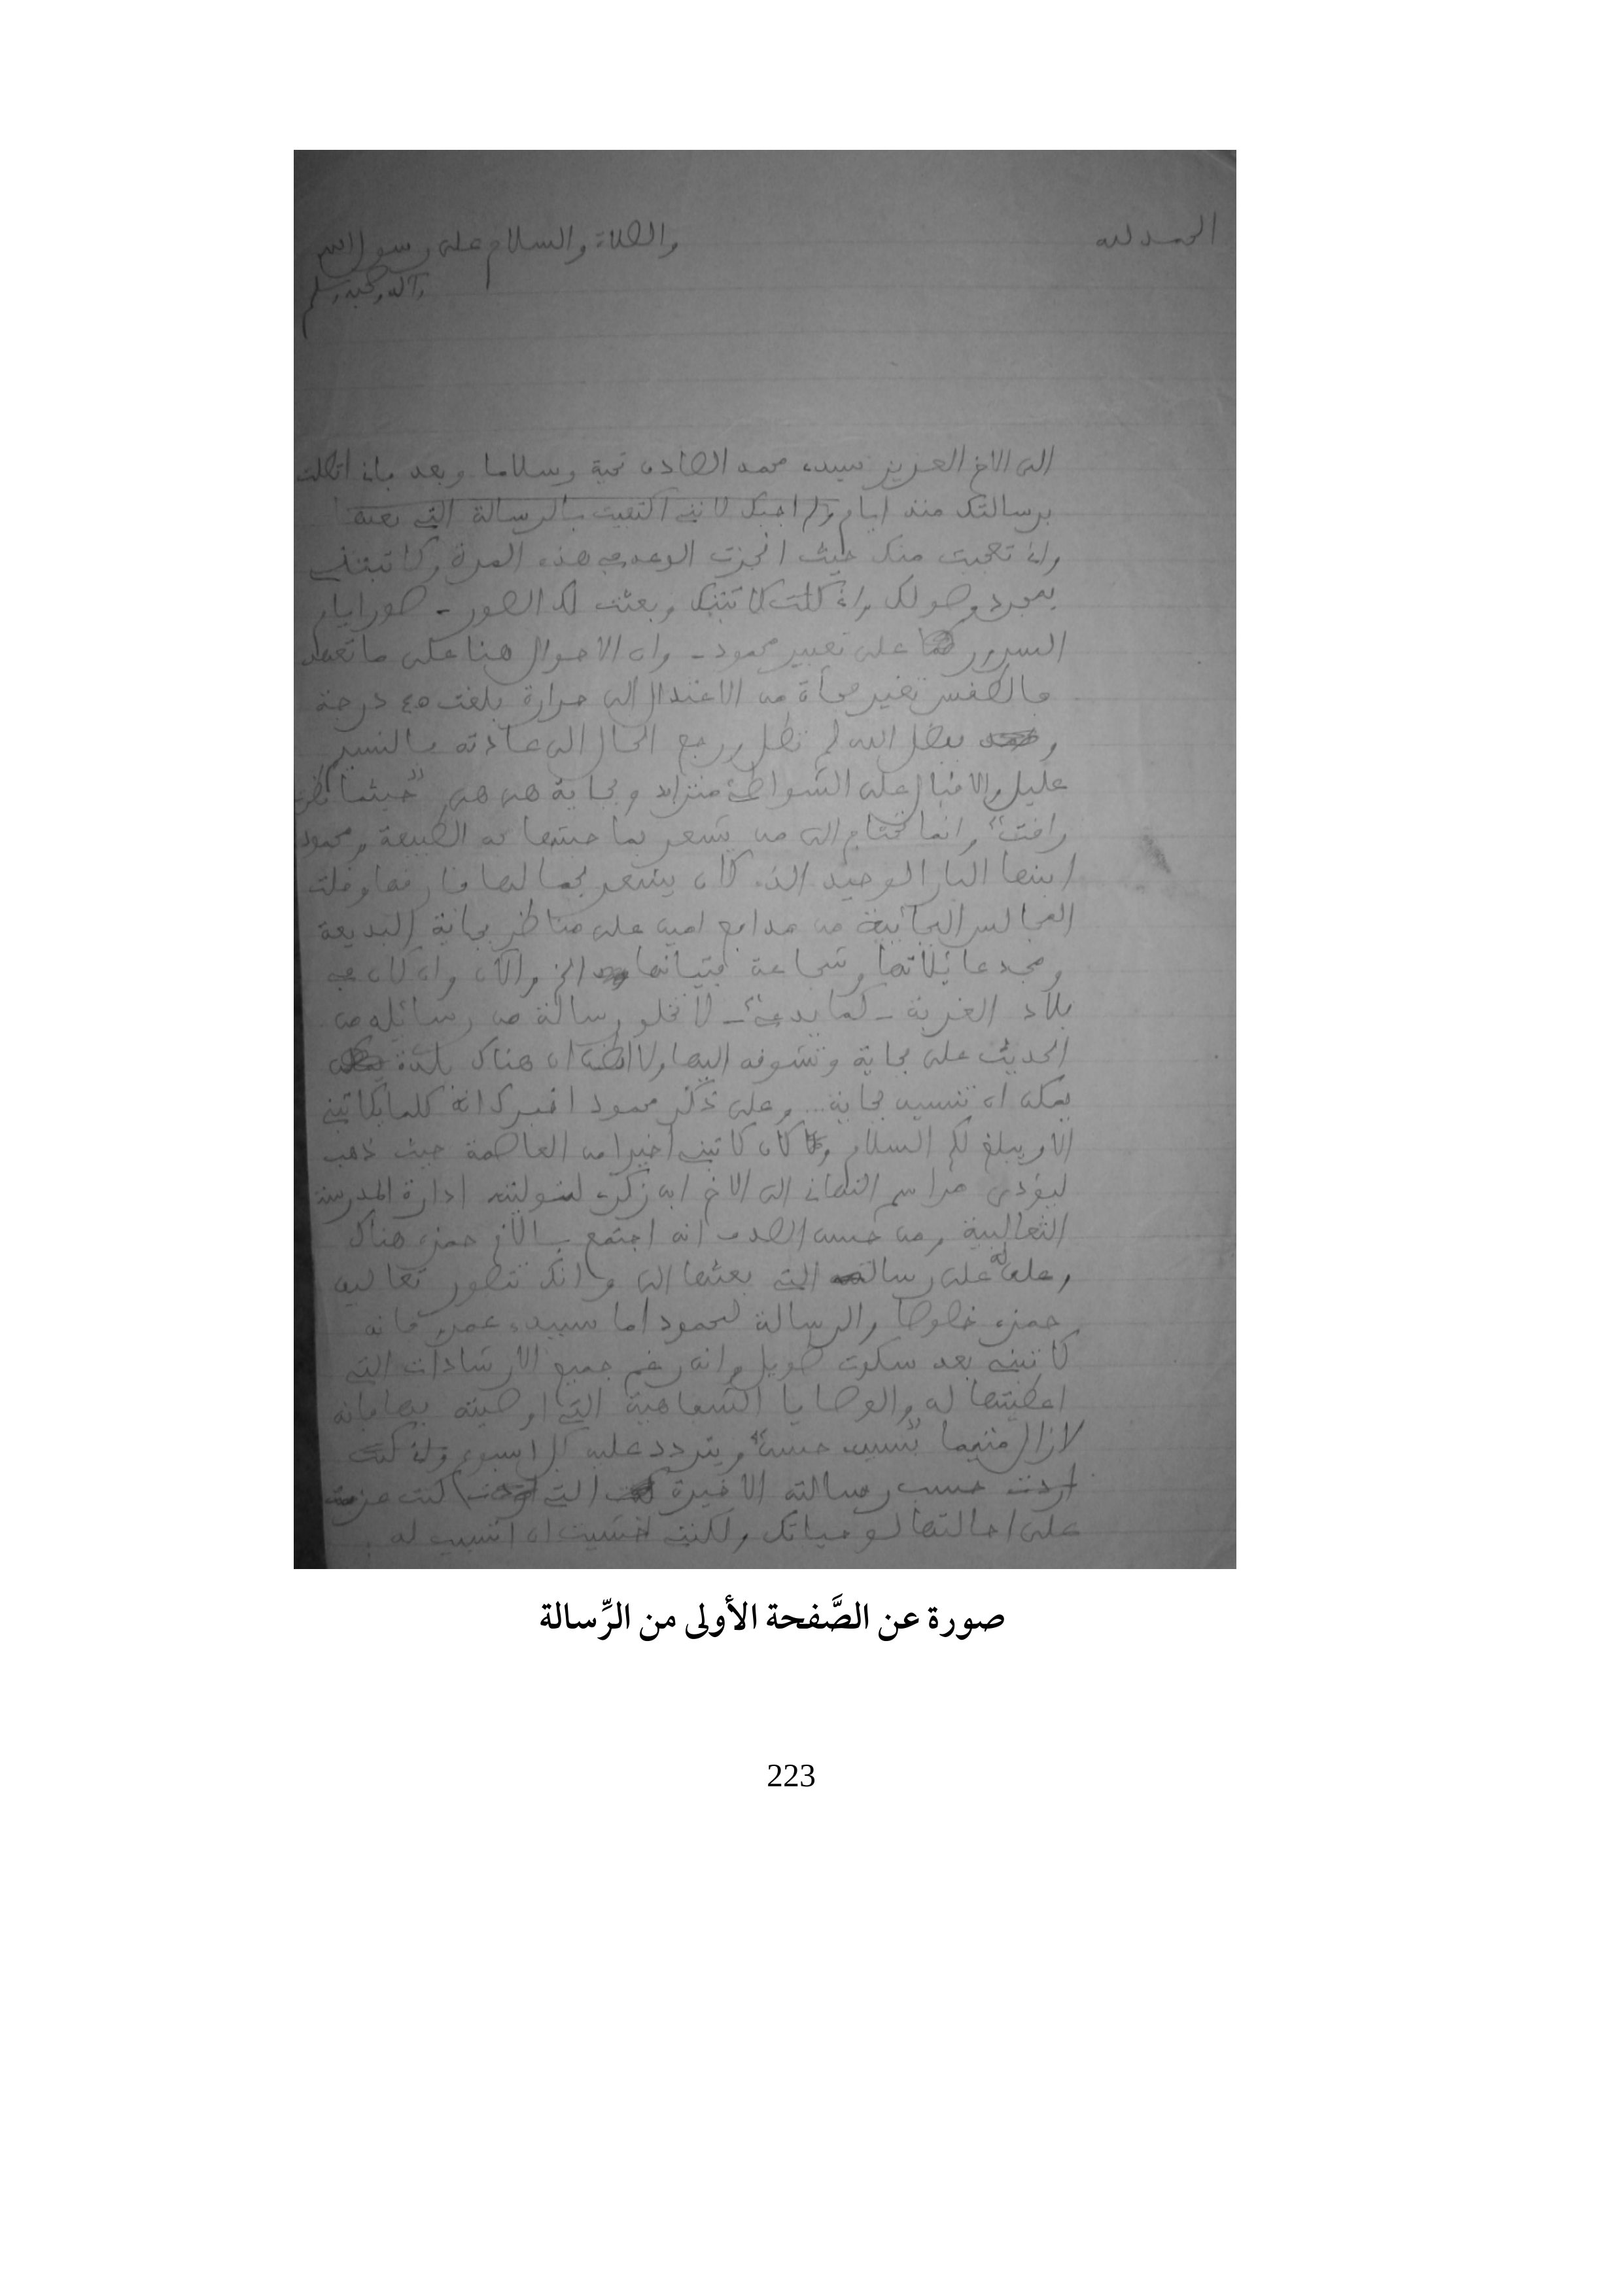 الحمد لله
والصلاة والسلام على رسول الله
وآله وصحبه وسلم
الى الاخ العزيز سيدي محمد الصادق تحية وسلاما وبعد فاني اتصلت
برسالتك منذ ايام ولم اجبك لانني اكتفيت بالرسالة التي
واني تعجبت منك حيث انجزت الوعد في هذه المرة وكاتبتني
بمجرد وصولك واني كاتبتك وبعثت لك الصور - صور ايام
السرور على تعبير محمود - وان الاحوال هنا على ما تعهد
فالطقس تغير فجأة من الاعتدال الى حرارة بلغت ٤٥ درجة
و بفضل الله لم تطل ورجع الحال الى عادته فالنسيم
عليل والاقبال على الشواطئ متزايد وبجاية هي هي "حيثما نظرت
راقت" وانما تحتاج الى من يشعر بما حبتها به الطبيعة ومحمود
ابنها البار الوحيد الذي كان يشعر بجمالها فارقها وخلت
المجالس البجائية من مدافع امين على مناظر بجاية البديعة
ومجد عائلاتها وشجاعة فتيانها الخ والآن وان كان في
بلاد الغربة - كما يدعي - لا تخلو رسالة من رسائله من
الحديث على بجاية وتشوقه اليها ولا اظن ان هناك بلدة
يمكن ان تنسيه بجاية... وعلى ذكر محمود اخبرك انه كلما يكاتبني
الا ويبلغ لكم السلام كان كاتبني اخيرا من العاصمة حيث ذهب
ليؤدي مراسم التهاني الى الاخ ابن زكري لتوليته ادارة المدرسة
الثعالبية ومن حسن الصدف انه اجتمع بالاخ حمزة هناك
على رسالته التي بعثها الي وانك تتصور تعاليق
حمزة خصوصا والرسالة لمحمود اما سيدي عمر فانه
كاتبني بعد سكوت طويل وانه رغم جميع الارشادات التي
اعطيتها له والوصايا الشفاهية التي اوصيته بها فانه
لازال متيما "بسيد حسن" ويتردد عليه كل اسبوع
اردت حسب رسالته الاخيرة التي كنت عزمت
على احالتها لوحياتك ولكنني خشيت ان اتسبب له
صورة عن الصَّفحة الأولى من الرِّسالة
223